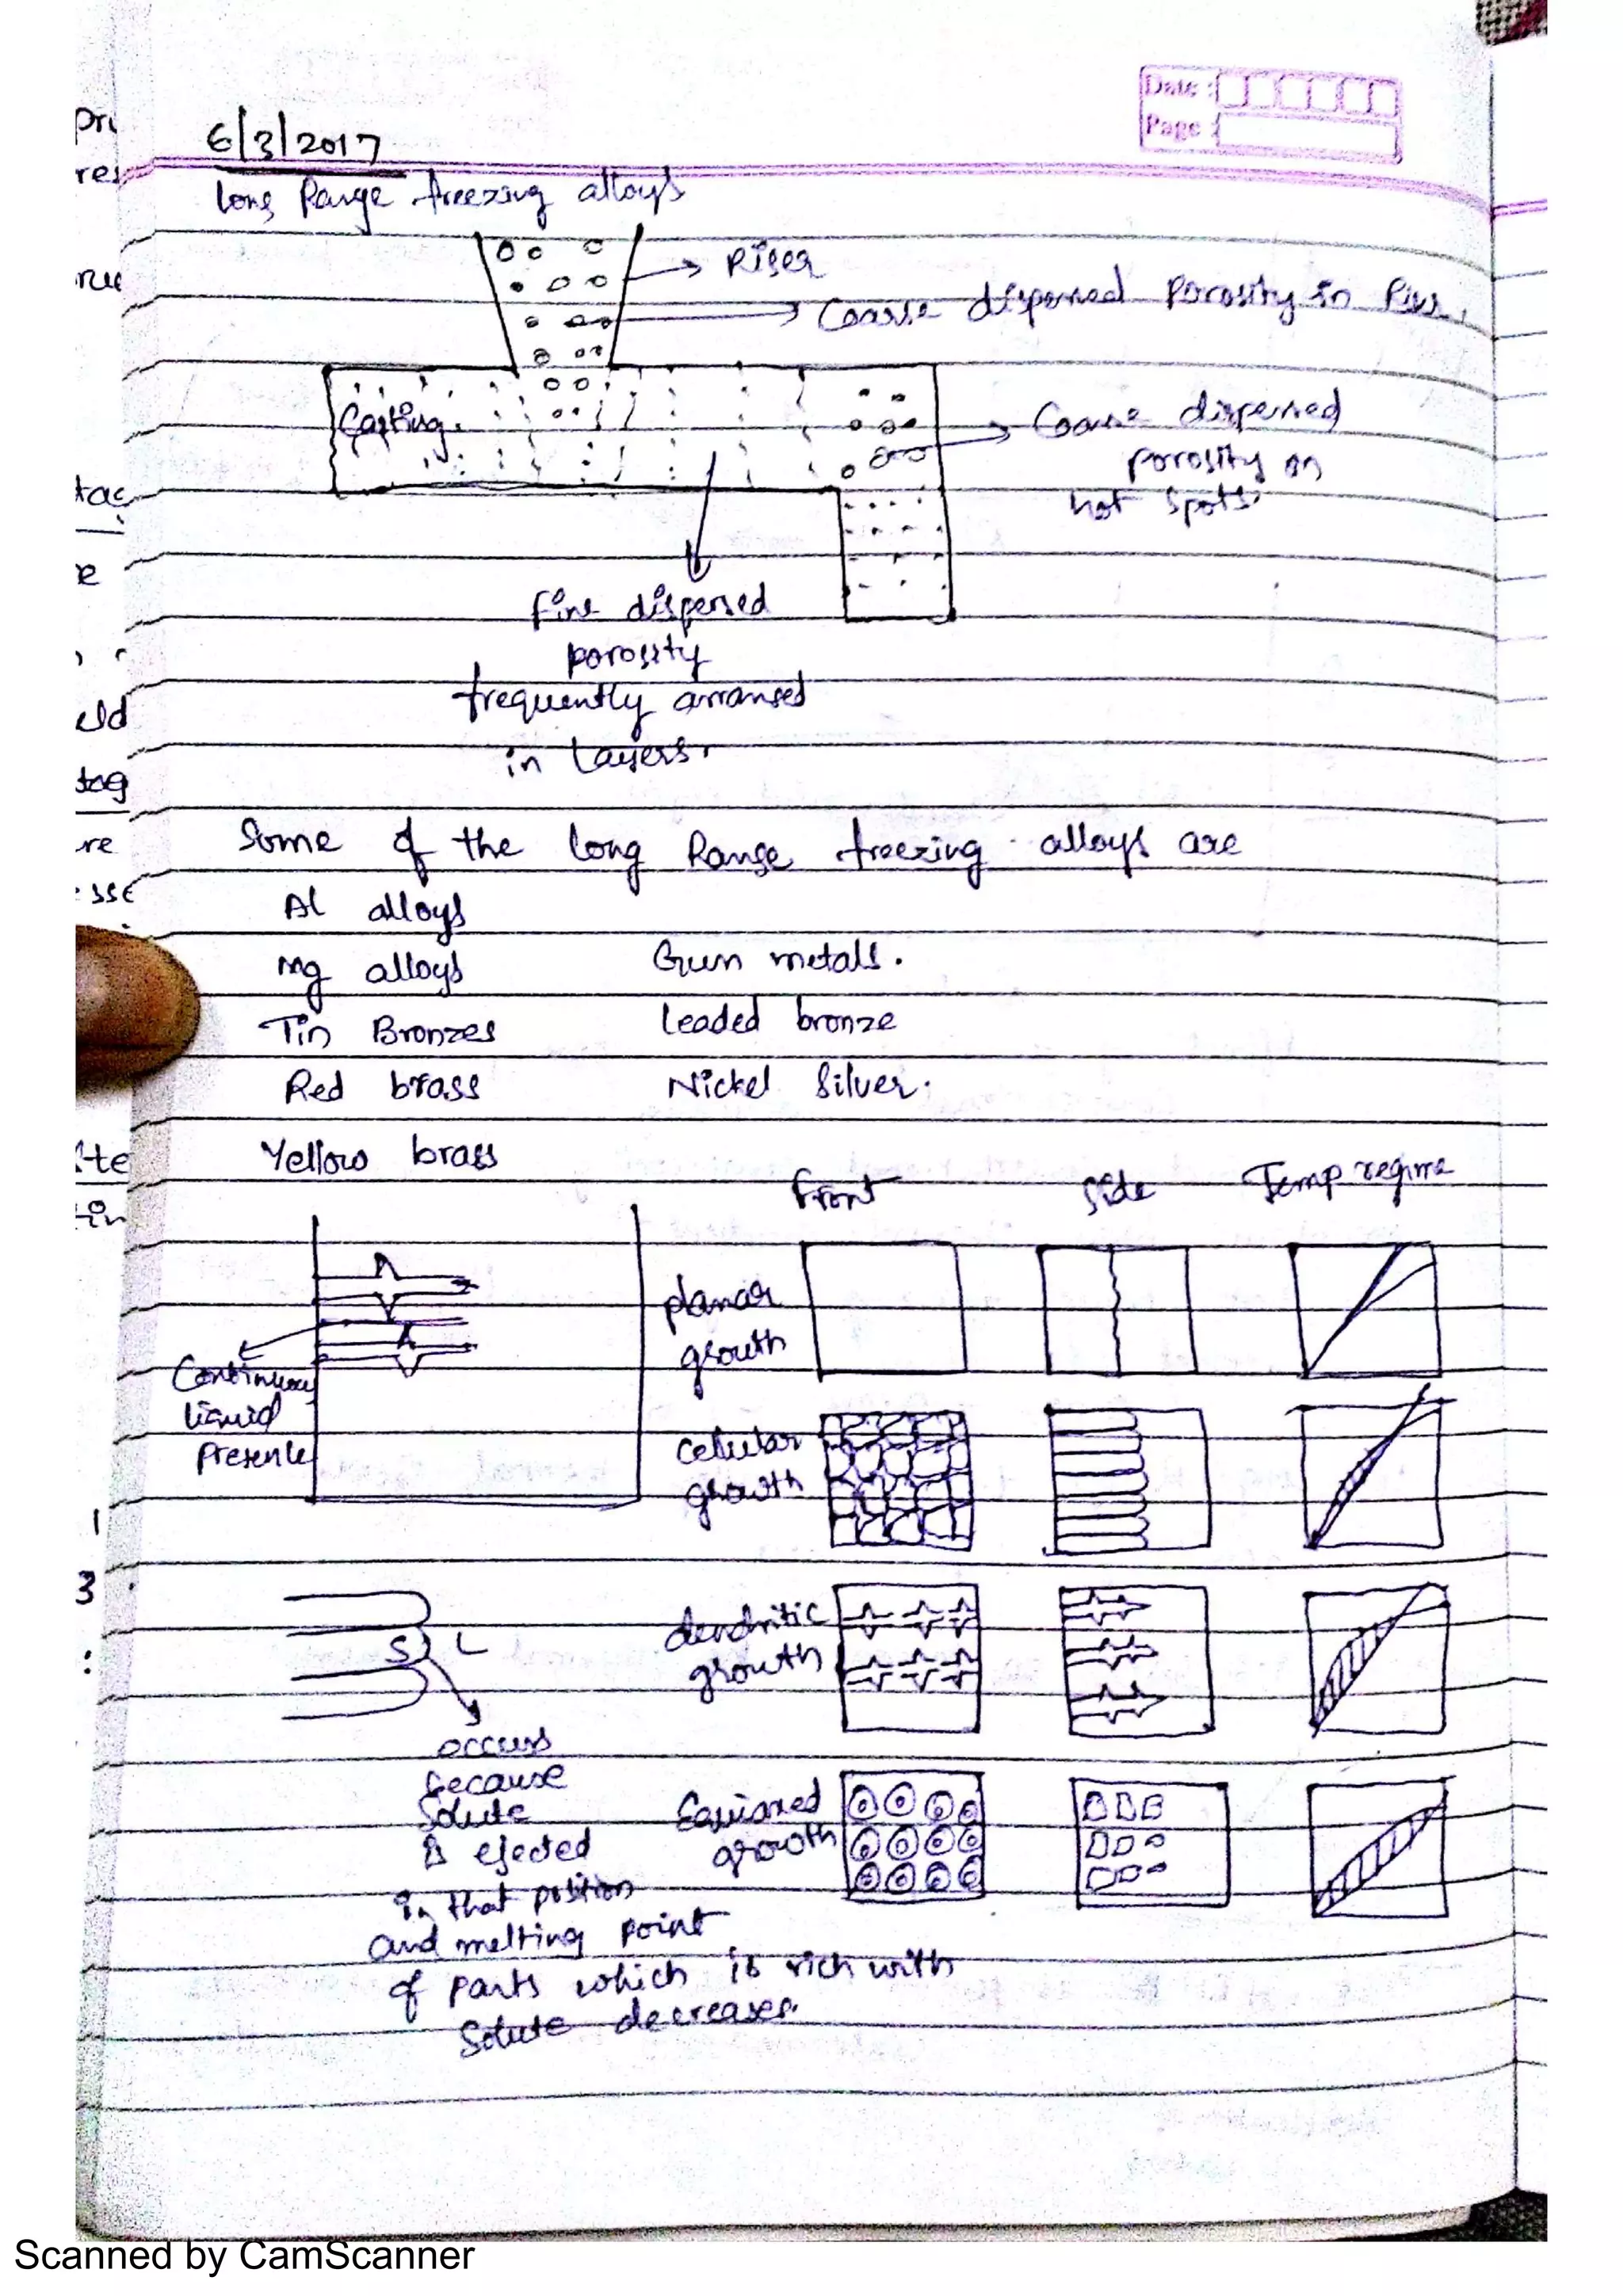 Date :
Page :
6/3/2017
Long Range freezing alloys
Riser
Coarse dispersed Porosity in Riser.
Casting.
Coarse dispersed
porosity on
hot spots.
fine dispersed
porosity
frequently arranged
in layers.
Some of the long Range freezing alloys are
Al alloys
Mg alloys Gun metals.
Tin Bronzes Leaded bronze
Red brass Nickel Silver.
Yellow brass
Front Side Temp regime
planar
growth
Continuous
liquid
Presence
Cellular
growth
dendritic
growth
S L
occurs
because
Solute
is ejected
in that position
and melting point
of parts which is rich with
Solute decreases.
Equiaxed
growth
Scanned by CamScanner